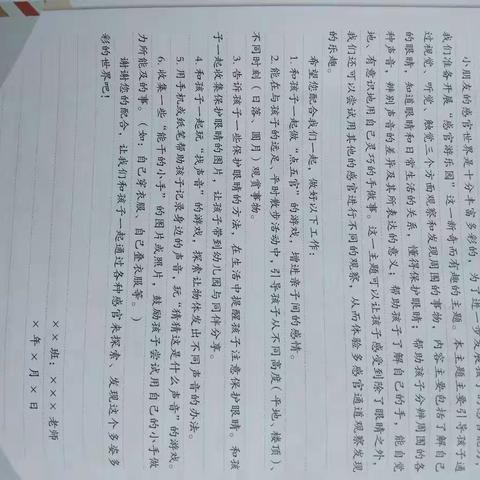 小朋友的感官世界是十分丰富多彩的，为了进一步发展孩子的感官能力，
我们准备开展“感官游乐园”这一新奇而有趣的主题。本主题主要引导孩子通
过视觉、听觉、触觉三个方面观察和发现周围的事物，内容主要包括了解自己
的眼睛，知道眼睛和日常生活的关系，懂得保护眼睛；帮助孩子分辨周围的各
种声音，辨别声音的差异及其所表达的意义，帮助孩子了解自己的手，能自觉
地、有意识地用自己灵巧的手做事。这一主题可以让孩子感受到除了眼睛之外，
我们还可以尝试用其他的感官进行不同的观察，从而体验多感官通道观察发现
的乐趣。
希望您配合我们一起，做好以下工作：
1. 和孩子一起做“点五官”的游戏，增进亲子间的感情。
2. 能在与孩子的远足、平时散步活动中，引导孩子从不同高度（平地、楼顶）、
不同时刻（日落、圆月）观赏事物。
3. 告诉孩子一些保护眼睛的方法，在生活中提醒孩子注意保护眼睛。和孩
子一起收集保护眼睛的图片，让孩子带到幼儿园与同伴分享。
4. 和孩子一起玩“找声音”的游戏，探索让物体发出不同声音的办法。
5. 用手机或纸笔帮助孩子记录身边的声音，玩“猜猜这是什么声音”的游戏。
6. 收集一些“能干的小手”的图片或照片，鼓励孩子尝试用自己的小手做
力所能及的事。（如：自己穿衣服、自己叠衣服等。）
谢谢您的配合，让我们和孩子一起通过各种感官来探索、发现这个多姿多
彩的世界吧！
××班：×××老师
×年×月×日